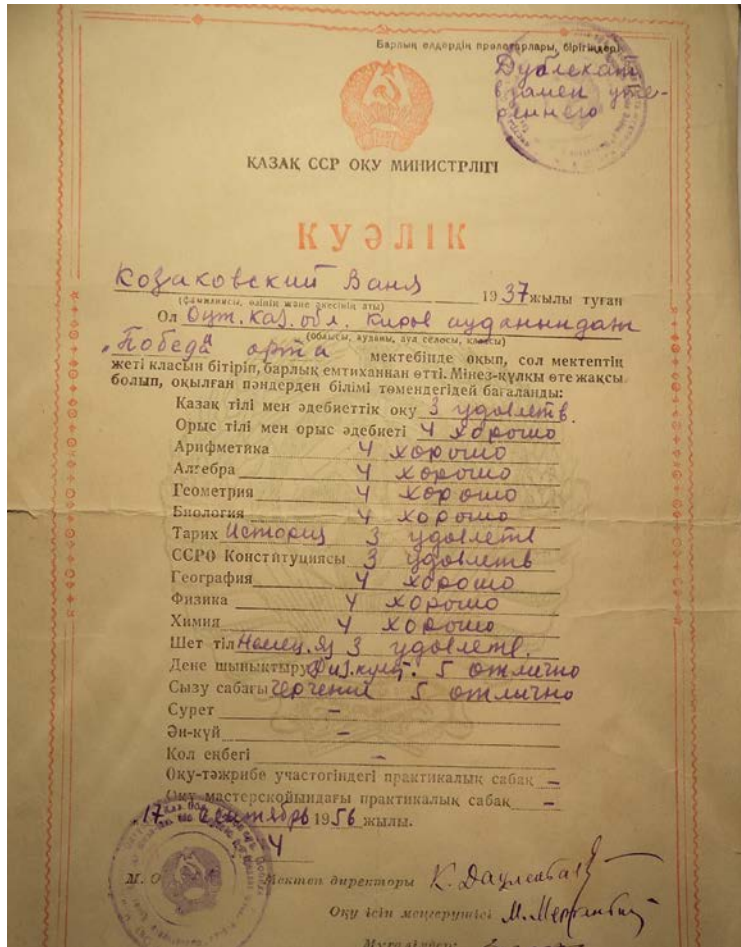 Барлық елдердің пролетарлары, бірігіңдер!
Дубликат
взамен уте-
ренного
ҚАЗАҚ ССР ОҚУ МИНИСТРЛІГІ
КУӘЛІК
Козаковский Ваня 1937 жылы туған
(фамилиясы, өзінің және әкесінің аты)
Ол Оңт. Каз. обл. Киров ауданындағы
(облысы, ауданы, ауа селосы, класы)
„Победа" орта мектебінде оқып, сол мектептің
жеті класын бітіріп, барлық емтиханнан өтті. Мінез-құлқы өте жақсы
болып, оқылған пәндерден білімі төмендегідей бағаланды:
Қазақ тілі мен әдебиеттік оқу 3 удовлетв.
Орыс тілі мен орыс әдебиеті 4 хорошо
Арифметика 4 хорошо
Алгебра 4 хорошо
Геометрия 4 хорошо
Биология 4 хорошо
Тарих История 3 удовлетв
ССРО Конституциясы 3 удовлетв
География 4 хорошо
Физика 4 хорошо
Химия 4 хорошо
Шет тіл Немец. яз 3 удовлетв.
Дене шынықтыру Физ.культ. 5 отлично
Сызу сабағы Черчение 5 отлично
Сурет –
Ән-күй –
Қол еңбегі –
Оқу-тәжрибе участогіндегі практикалық сабақ –
Оқу мастерскойындағы практикалық сабақ –
„17" Сентябрь 1956 жылы.
4
М. О
Мектеп директоры
Оқу ісін меңгерушісі
Мұғалімдер: